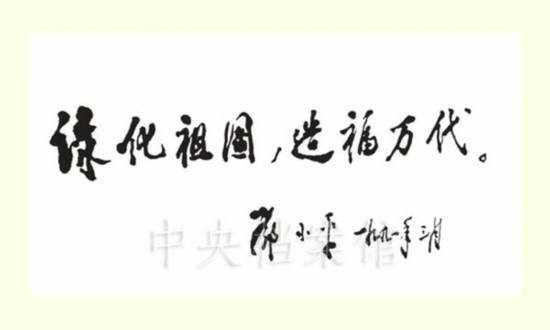 绿化祖国，造福万代。
邓小平 一九九一年三月
中央档案馆